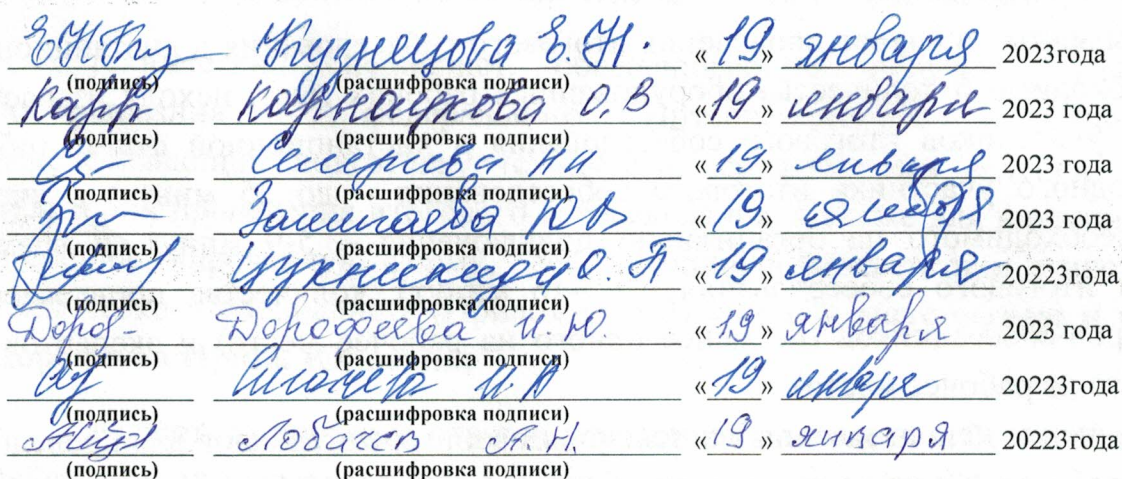 Кузнецова Е.Н. «19» января 2023года
(подпись) (расшифровка подписи)
Карнаухова О.В «19» января 2023 года
(подпись) (расшифровка подписи)
«19» января 2023 года
(подпись) (расшифровка подписи)
Ю.В «19» января 2023 года
(подпись) (расшифровка подписи)
О.П «19» января 20223года
(подпись) (расшифровка подписи)
Дороф- Дорофеева И.Ю «19» января 2023 года
(подпись) (расшифровка подписи)
«19» января 20223года
(подпись) (расшифровка подписи)
Лобачев А.Н. «19» января 20223года
(подпись) (расшифровка подписи)